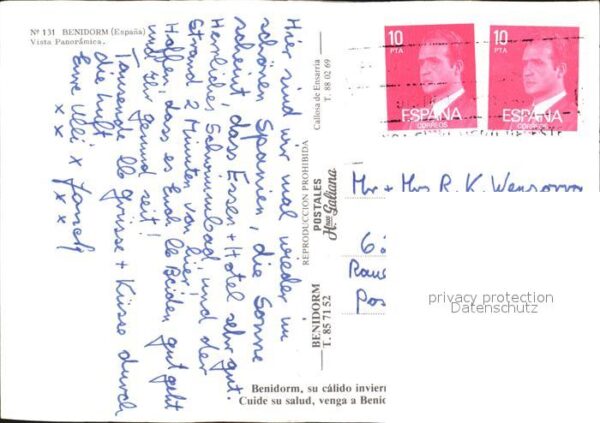 Nº 131 BENIDORM (España)
Vista Panorámica.
Hier sind wir mal wieder im
schönen Spanien, die Sonne
scheint, dass Essen + Hotel sehr gut.
Herrliches Schwimmbad und der
Strand 2 Minuten von hier!
Hoffen, dass es Euch lb Beiden gut geht
und Ihr gesund seit!
Tausend lb Grüsse + Küsse durch
die Luft
Eure x
x x x x
REPRODUCCION PROHIBIDA
Callosa de Ensarria
T. 88 02 69
POSTALES
Hnos Galiana
BENIDORM
T. 85 71 52
10
PTA
ESPAÑA
CORREOS
10
PTA
ESPAÑA
CORREOS
Mr + Mrs R. K.
6
privacy protection
Datenschutz
Benidorm, su cálido invier
Cuide su salud, venga a Benid